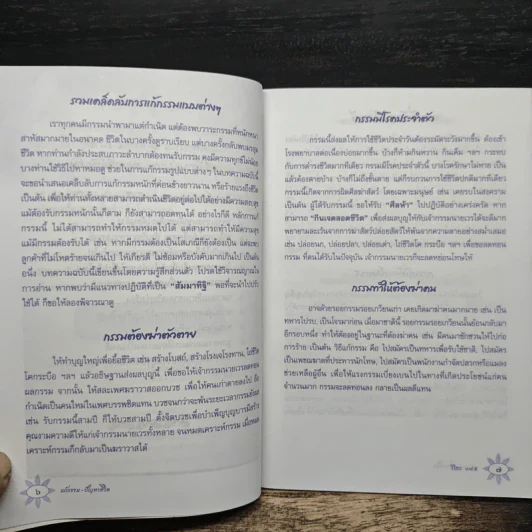 รวมเคล็ดลับการแก้กรรมแบบต่างๆ
เราทุกคนมีกรรมนำพามาแต่กำเนิด แต่ต้องพบวาระกรรมที่หนักหนา
สาหัสมากมายในอนาคต ชีวิตในบางครั้งดูราบเรียบ แต่บางครั้งกลับตกหลุม
ชีวิต หากท่านกำลังประสบภาวะลำบากต้องทนรับกรรม คงมีความทุกข์ไม่น้อย
บางท่านใช้วิธีไปหาหมอดู ช่วยในการแก้กรรมรูปแบบต่าง ๆ ในบทความฉบับนี้
จะขอนำเสนอเคล็บลับการแก้กรรมหนักที่ค่อนข้างยาวนาน หรือร้ายแรงถึงชีวิต
เป็นต้น เพื่อให้ท่านทั้งหลายสามารถดำเนินชีวิตอยู่ต่อไปได้อย่างมีความสงบสุข
แม้ต้องรับกรรมหนักนั้นก็ตาม ก็ยังสามารถอดทนได้ อย่างไรก็ดี หลักการแก้
กรรมนี้ ไม่ได้สามารถทำให้กรรมหมดไปได้ แต่สามารถทำให้มีความสุข
แม้มีกรรมต้องรับได้ เช่น หากมีกรรมต้องเป็นโสเภณีก็ยังต้องเป็น แต่จะพบ
ลูกค้าที่ไม่โหดร้ายจนเกินไป ให้เกียรติ ไม่ซ้อมหรือบังคับมากเกินไป เป็นต้น
อนึ่ง บทความฉบับนี้เขียนขึ้นโดยความรู้สึกส่วนตัว โปรดใช้วิจารณญาณใน
การอ่าน หากพบว่ามีแนวทางปฏิบัติที่เป็น "สัมมาทิฐิ" พอที่จะนำไปปรับ
ใช้ได้ ก็ขอให้ลองพิจารณาดู
กรรมต้องฆ่าตัวตาย
ให้ทำบุญใหญ่เพื่อยื้อชีวิต เช่น สร้างโบสถ์, สร้างโรงเจโรงทาน, ไถ่ชีวิต
โคกระบือ ฯลฯ แล้วอธิษฐานส่งผลบุญนี้ เพื่อขอให้เจ้ากรรมนายเวรลดทอน
ผลกรรม จากนั้น ให้สละเพศฆราวาสออกบวช เพื่อให้คนเก่าตายลงไป ถือ
กำเนิดเป็นคนใหม่ในเพศบรรพชิตแทน บวชจนกว่าจะพ้นระยะเวลากรรมนั้นส่งผล
เช่น รับกรรมนี้สามปี ก็ให้บวชสามปี ตั้งจิตบวชเพื่อบำเพ็ญบุญบารมีสร้าง
คุณงามความดีให้แก่เจ้ากรรมนายเวรทั้งหลาย จนหมดเคราะห์กรรม เมื่อหมด
เคราะห์กรรมก็กลับมาเป็นฆราวาสได้
๖ แก้กรรม-ปัญหาชีวิต
กรรมมีโรคประจำตัว
กรรมนี้ส่งผลให้การใช้ชีวิตประจำวันต้องระมัดระวังมากขึ้น ต้องเข้า
โรงพยาบาลต่อเนื่องบ่อยมากขึ้น บ้างก็ห้ามกินหวาน กินเค็ม ฯลฯ กระทบ
กับการดำรงชีวิตมากทีเดียว กรรมมีโรคประจำตัวนี้ บางโรครักษาไม่หาย เป็น
แล้วต้องตายบ้าง บ้างก็ไม่ถึงขั้นตาย แต่ก็รบกวนการใช้ชีวิตปกติมากทีเดียว
กรรมนี้เกิดจากการผิดศีลฆ่าสัตว์ โดยเฉพาะมนุษย์ เช่น เคยรบในสงคราม
เป็นต้น ผู้ได้รับกรรมนี้ ขอให้รับ "ศีลห้า" ไปปฏิบัติอย่างเคร่งครัด หาก
สามารถ "กินเจตลอดชีวิต" เพื่อส่งผลบุญให้กับเจ้ากรรมนายเวรได้จะดีมาก
พยายามละเว้นจากการฆ่าสัตว์ปล่อยสัตว์ให้พ้นจากความตายอย่างสม่ำเสมอ
เช่น ปล่อยนก, ปล่อยปลา, ปล่อยเต่า, ไถ่ชีวิตโค กระบือ ฯลฯ เพื่อชดลดทอน
กรรม ที่ตนได้รับในปัจจุบัน เจ้ากรรมนายเวรก็จะลดหย่อนโทษให้
กรรมทำให้ต้องฆ่าคน
อาจด้วยรอยกรรมรอยเกวียนเก่า เคยเกิดมาฆ่าคนมากมาย เช่น เป็น
ทหารไปรบ, เป็นโจรมาก่อน เมื่อมาชาตินี้ รอยกรรมรอยเกวียนนั้นย้อนกลับมา
อีกรอบหนึ่ง ทำให้ต้องอยู่ในฐานะที่ต้องฆ่าคน เช่น มีคนมาชักชวนให้ไปก่อ
การร้าย เป็นต้น วิธีแก้กรรม คือ ไปสมัครเป็นทหารเพื่อรับใช้ชาติ, ไปสมัคร
เป็นเพชฌฆาตที่ประหารนักโทษ, ไปสมัครเป็นพนักงานกำจัดปลวกหรือแมลง
ช่วยเหลือผู้อื่น เพื่อให้แรงกรรมเบี่ยงเบนไปในทางที่เกิดประโยชน์แก่คน
จำนวนมาก กรรมจะลดทอนลง กลายเป็นผลดีแทน
๗